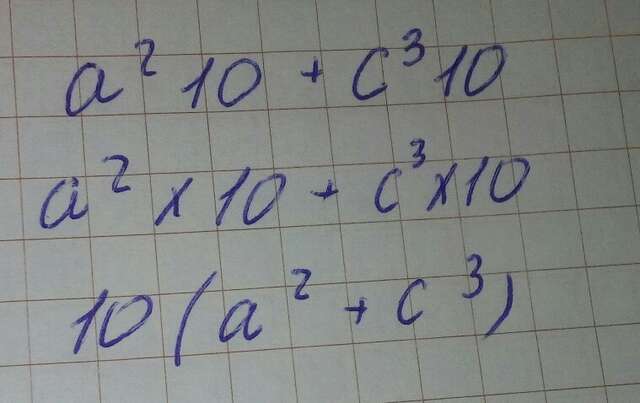 a² 10 + c³ 10
a² x 10 + c³ x 10
10 (a² + c³)